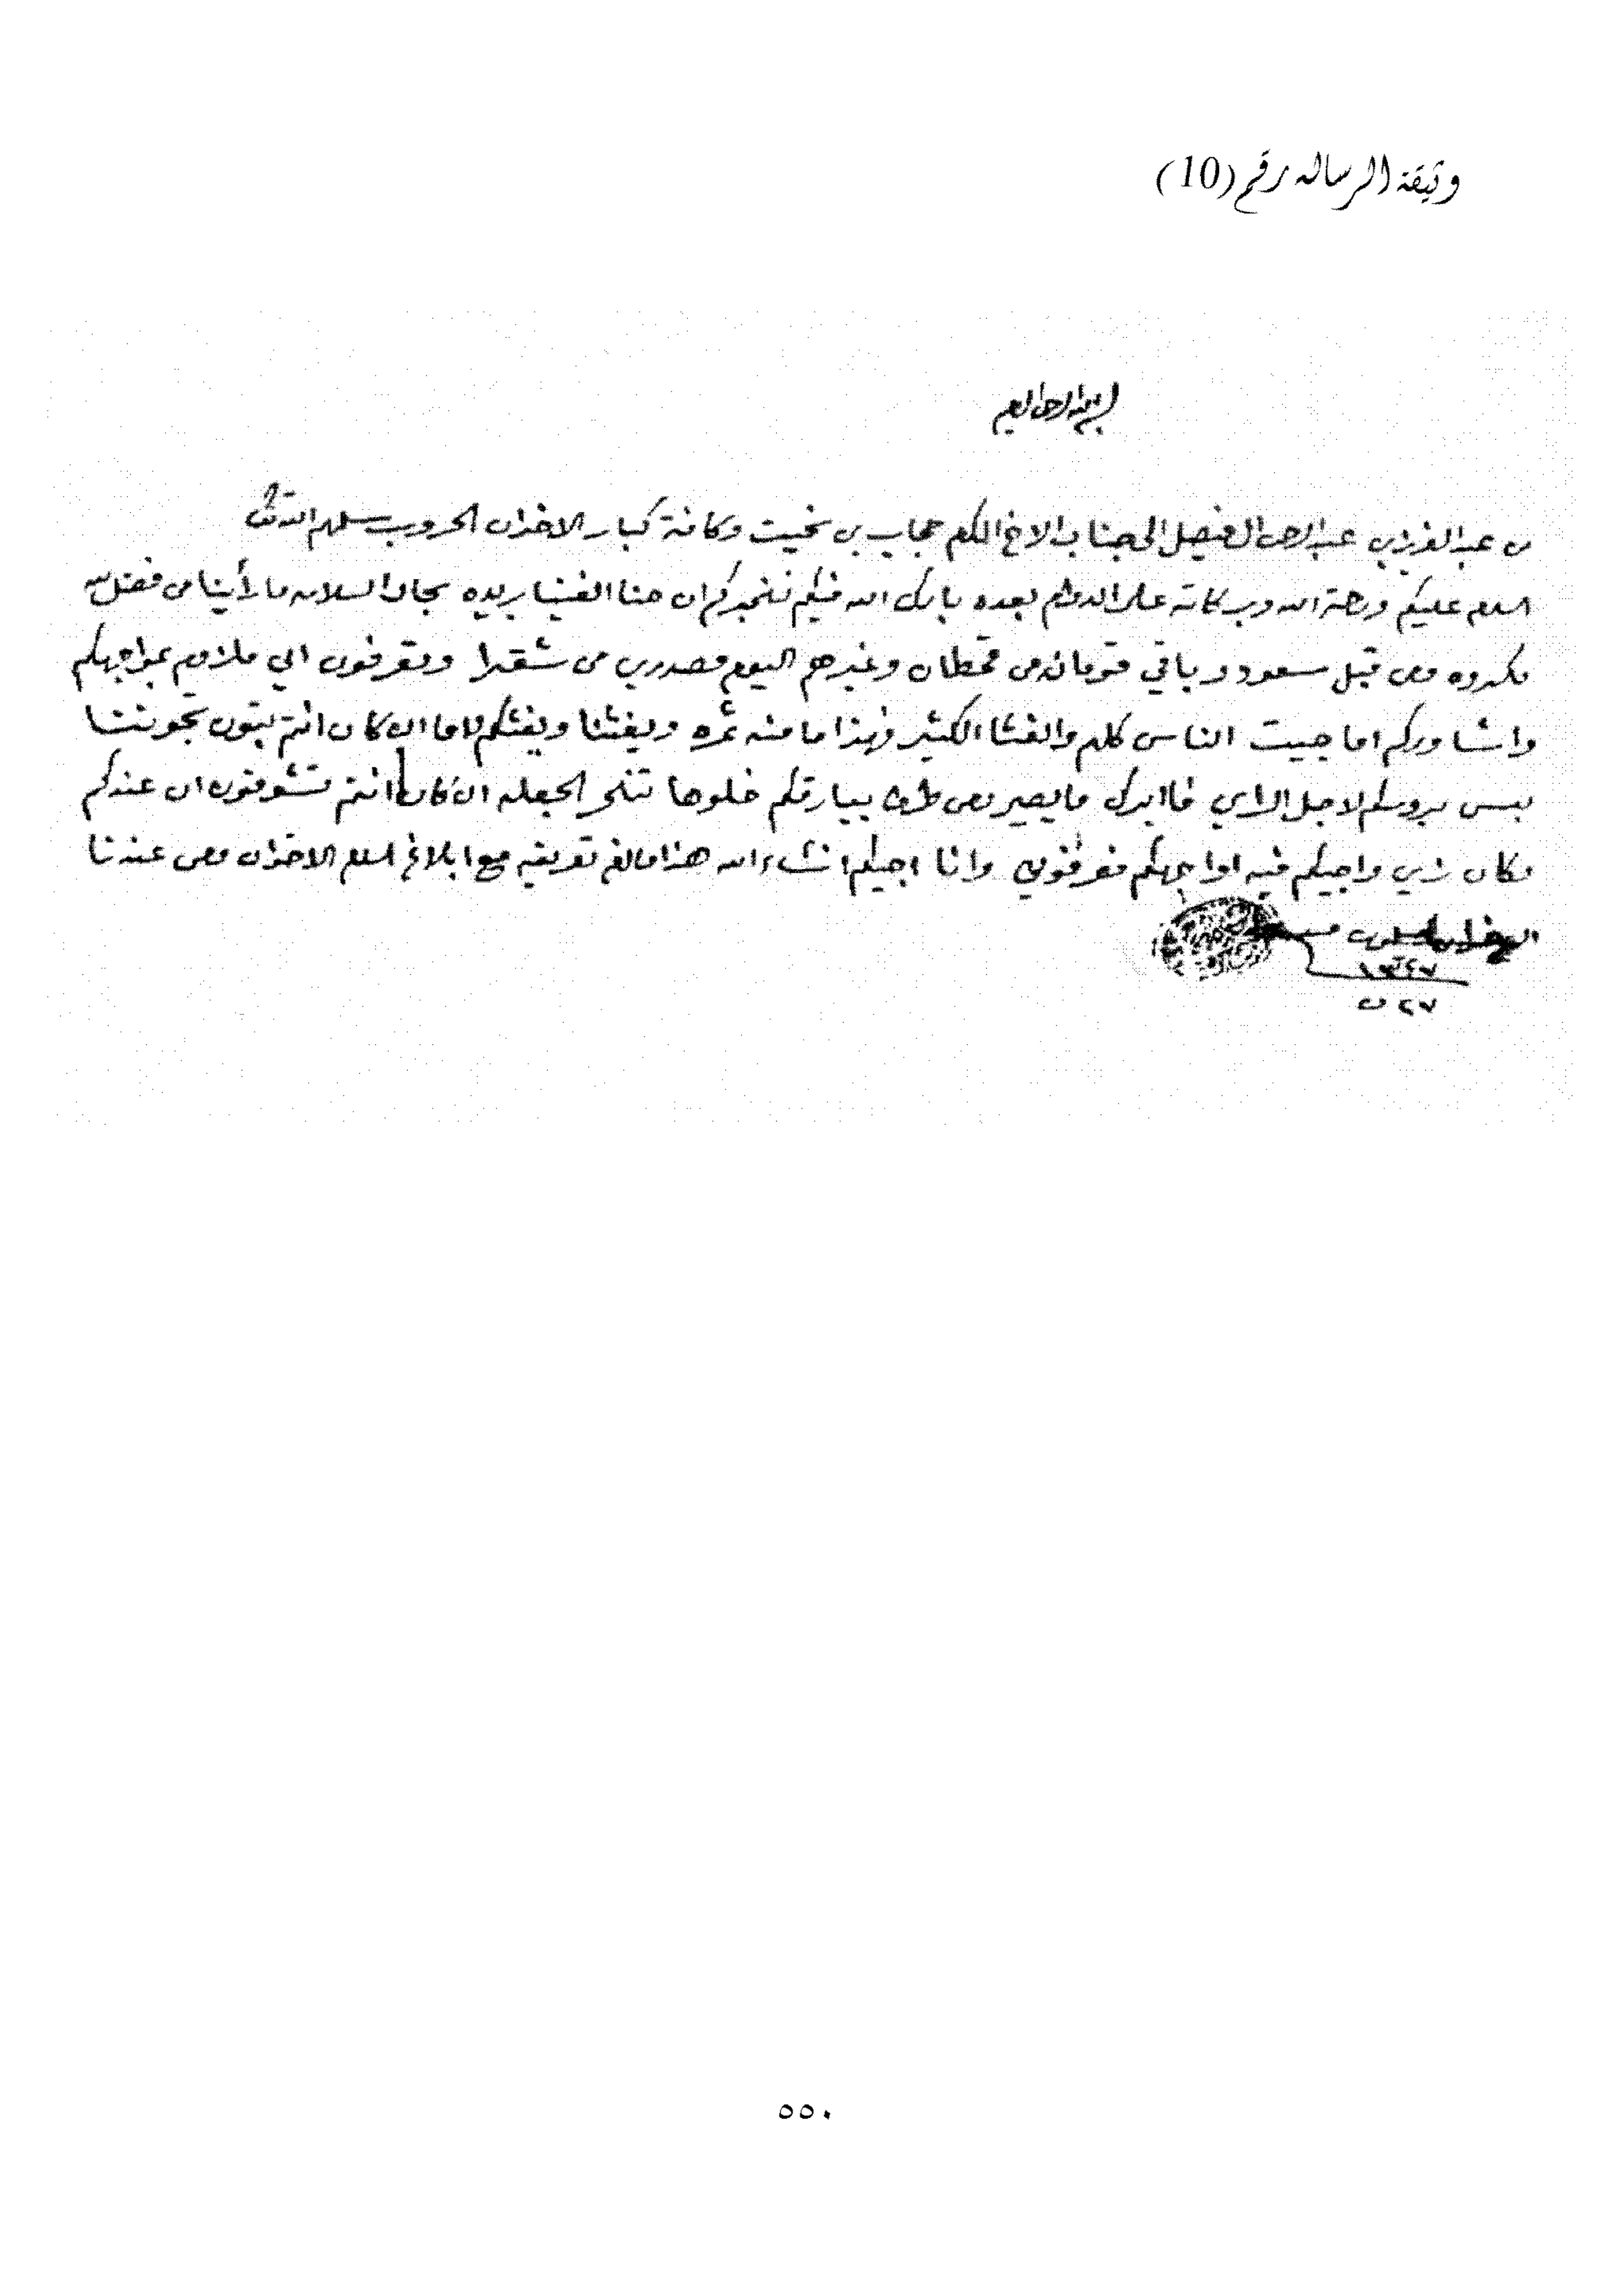 وثيقة الرساله رقم (10)
بسم الله الرحمن الرحيم
من عبد العزيز بن عبد الرحمن الفيصل الى جناب الاخ المكرم حجاب بن نحيت وكافة كبار الاخوان الحروب سلمهم الله تعالى
السلام عليكم ورحمة الله وبركاته على الدوام بعده بارك الله فيكم نخبركم ان حنا الفينا بريده بحال السلامه ما رأينا من فضل الله
مكروه ومن قبل سعود وباقي قومانه من قحطان وغيرهم اليوم مصدري من شقرا وتعرفون اني ملازم بمواجهكم
واشاوركم اما جيت الناس كلهم والغشا الكثير فهذا ما منه ثمره ويغثنا ويغثكم لاما ان كان انتم تبون تجوننا
بس بروسكم لاجل الراي فا ابرك ما يصير ومن طرف بيارقكم خلوها تنحر الجعله ان كان انتم تشوفون ان عندكم
مكان زين واجيكم فيه اواجهكم فعرفوني وانا اجيكم انشاء الله هذا مالزم تعريفه مع ابلاغ السلام الاخوان ومن عندنا
الاخوان يسلمون
١٣٢٧
٢٧ ن
٥٥٠